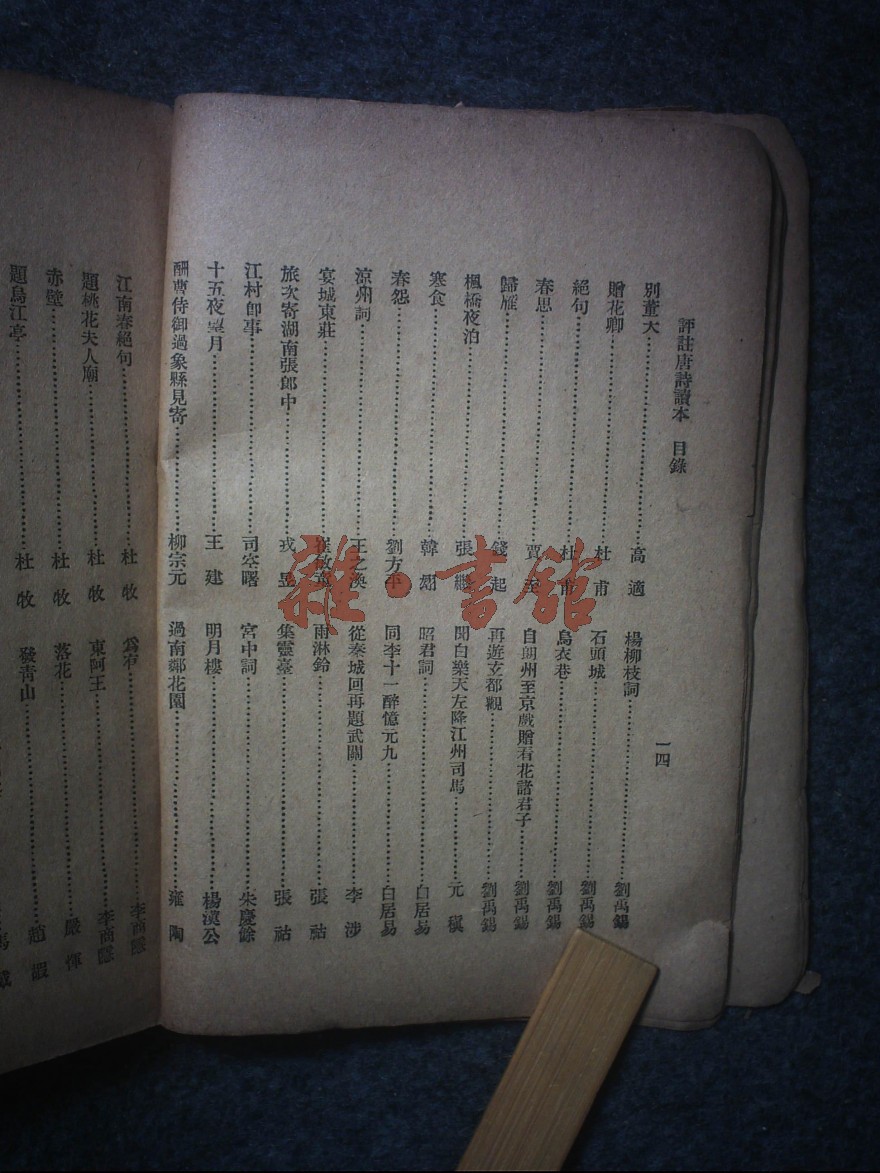 評註唐詩讀本 目錄 一四
別董大………高適
贈花卿………杜甫
絕句………杜甫
春思………賈至
歸雁………錢起
楓橋夜泊………張繼
寒食………韓翃
春怨………劉方平
涼州詞………王之渙
宴城東莊………崔敏童
旅次寄湖南張郎中………戎昱
江村卽事………司空曙
十五夜望月………王建
酬曹侍御過象縣見寄………柳宗元
楊柳枝詞………劉禹錫
石頭城………劉禹錫
烏衣巷………劉禹錫
自朗州至京戲贈看花諸君子………劉禹錫
再遊玄都觀………劉禹錫
聞白樂天左降江州司馬………元稹
昭君詞………白居易
同李十一醉憶元九………白居易
從秦城回再題武關………李涉
雨淋鈴………張祜
集靈臺………張祜
宮中詞………朱慶餘
明月樓………楊漢公
過南鄰花園………雍陶
江南春絕句………杜牧
題桃花夫人廟………杜牧
赤壁………杜牧
題烏江亭………杜牧
爲有………李商隱
東阿王………李商隱
落花………嚴惲
發青山………趙嘏
雜·書館